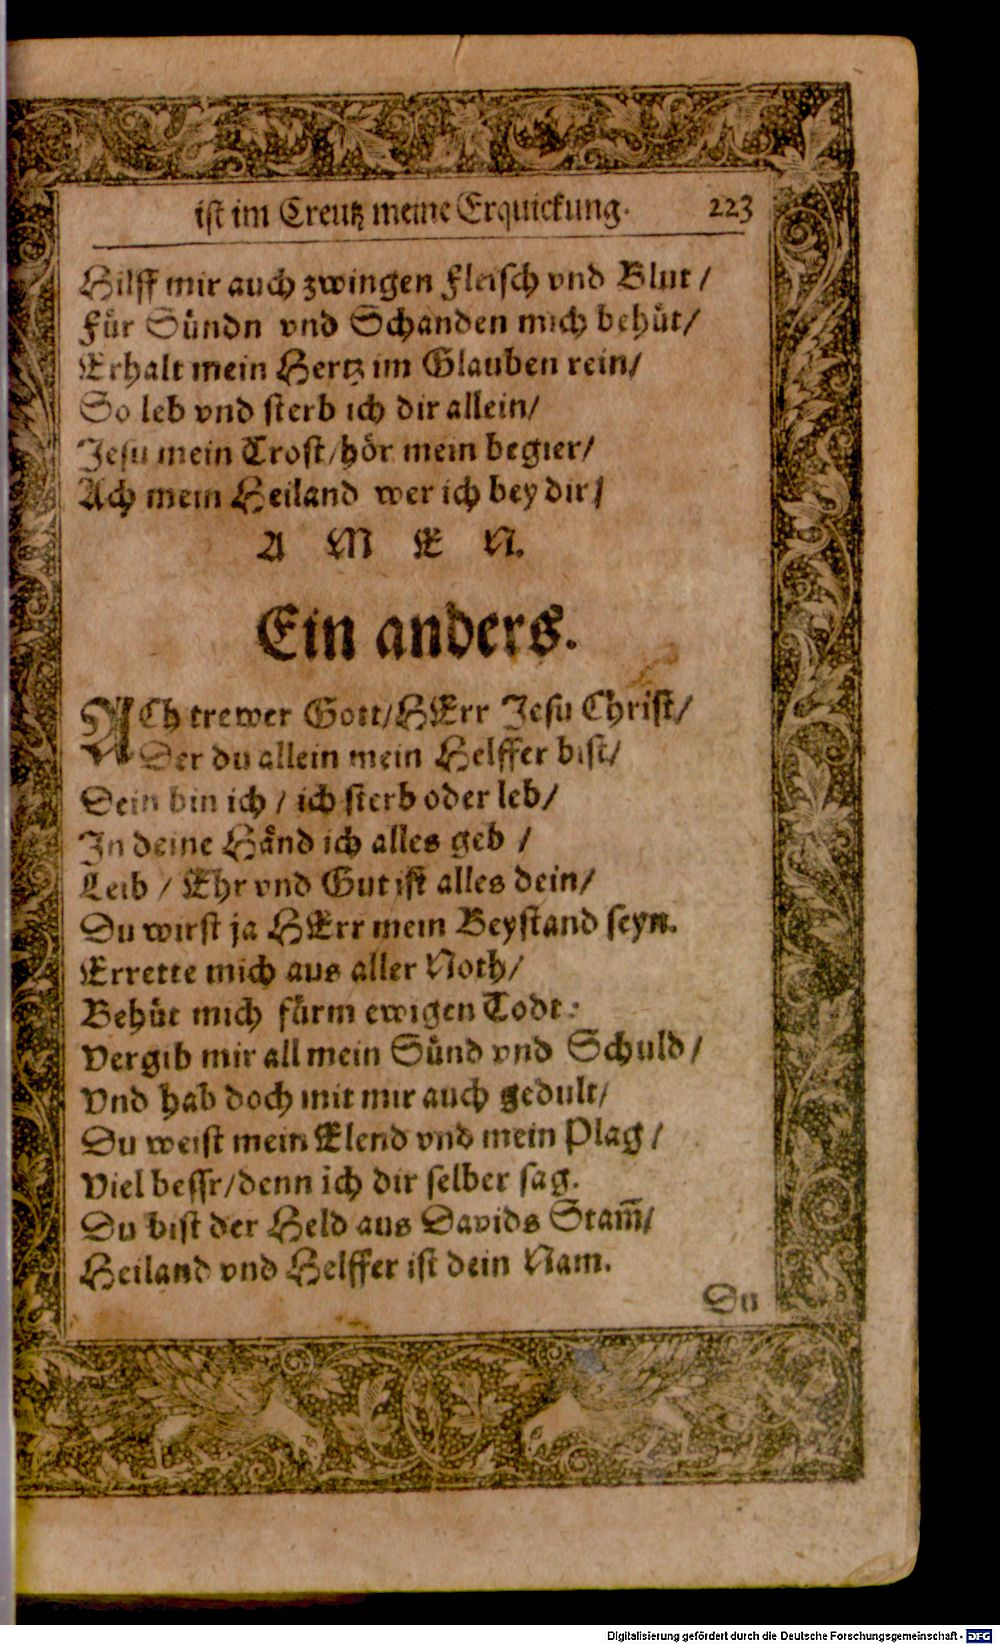 ist im Creutz meine Erquickung. 223
Hilff mir auch zwingen Fleisch vnd Blut /
Für Sündn vnd Schanden mich behüt/
Erhalt mein Hertz im Glauben rein/
So leb vnd sterb ich dir allein/
Jesu mein Trost/hör mein begier/
Ach mein Heiland wer ich bey dir/
A M E N.
Ein anders.
ACh trewer Gott/HErr Jesu Christ/
Der du allein mein Helffer bist/
Dein bin ich / ich sterb oder leb/
In deine Händ ich alles geb /
Leib / Ehr vnd Gut ist alles dein/
Du wirst ja HErr mein Beystand seyn.
Errette mich aus aller Noth/
Behüt mich fürm ewigen Todt:
Vergib mir all mein Sünd vnd Schuld/
Vnd hab doch mit mir auch gedult/
Du weist mein Elend vnd mein Plag /
Viel bessr/denn ich dir selber sag.
Du bist der Held aus Davids Stam̄/
Heiland vnd Helffer ist dein Nam.
Du
Digitalisierung gefördert durch die Deutsche Forschungsgemeinschaft - DFG